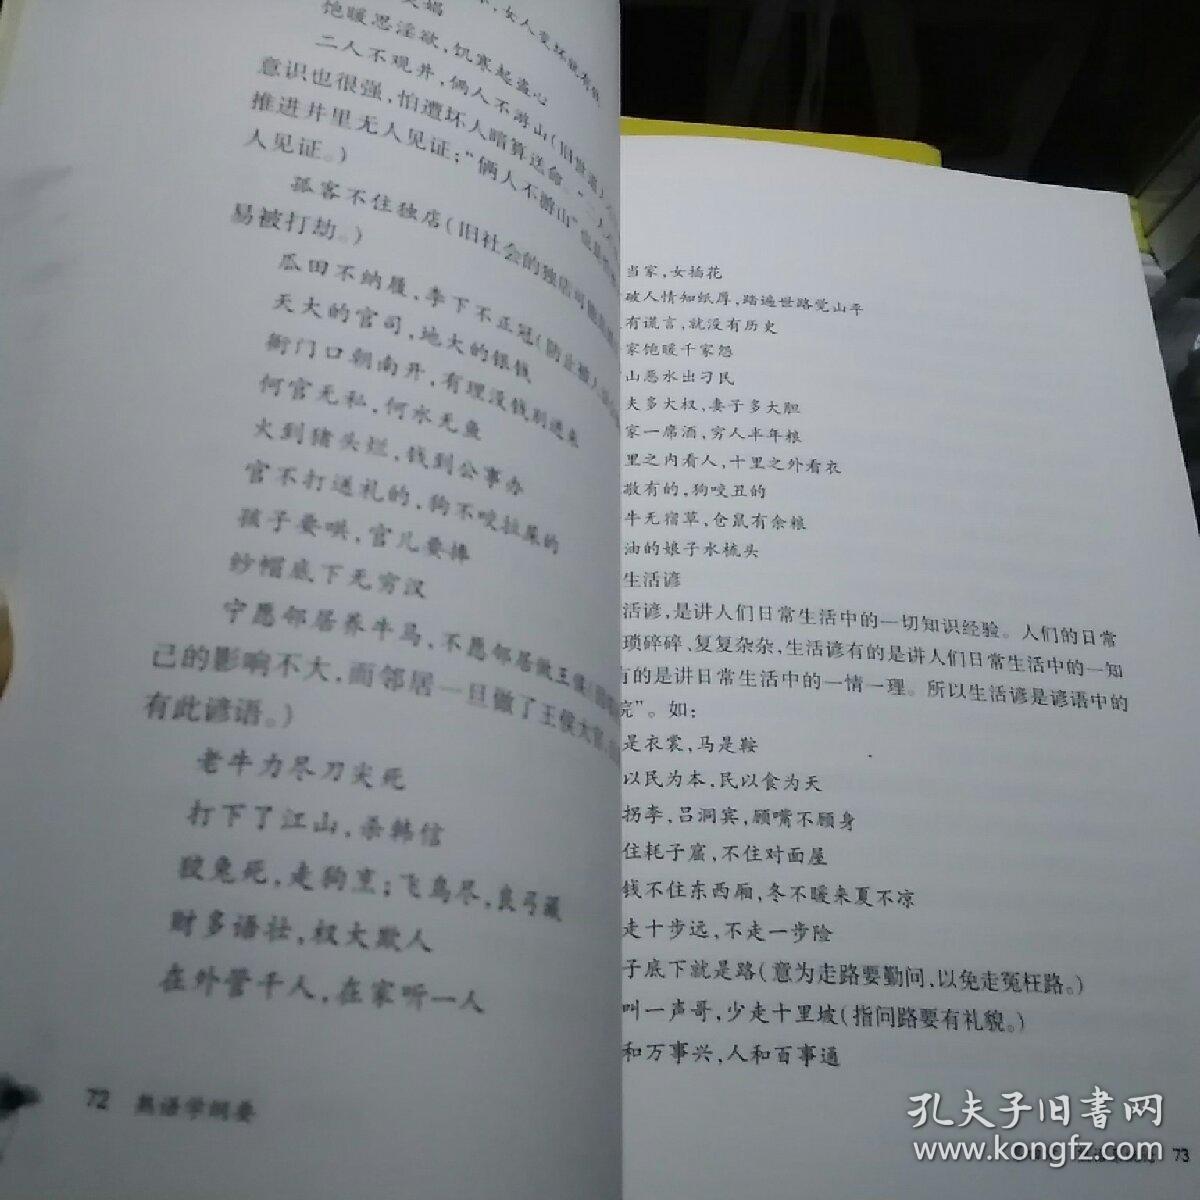 女人变坏就有钱
饱暖思淫欲，饥寒起盗心
二人不观井，俩人不游山（旧世道
意识也很强，怕遭坏人暗算送命。“二人不
推进井里无人见证；“俩人不游山”也是
人见证。）
孤客不住独店（旧社会的独店可能
易被打劫。）
瓜田不纳履，李下不正冠（防止被人
天大的官司，地大的银钱
衙门口朝南开，有理没钱别进来
何官无私，何水无鱼
火到猪头烂，钱到公事办
官不打送礼的，狗不咬拉屎的
孩子要哄，官儿要捧
纱帽底下无穷汉
宁愿邻居养牛马，不愿邻居做王侯
己的影响不大，而邻居一旦做了王侯大官
有此谚语。）
老牛力尽刀尖死
打下了江山，杀韩信
狡兔死，走狗烹；飞鸟尽，良弓藏
财多语壮，权大欺人
在外管千人，在家听一人
72 熟语学纲要
当家，女插花
破人情知纸厚，踏遍世路觉山平
有谎言，就没有历史
家饱暖千家怨
山恶水出刁民
夫多大权，妻子多大胆
家一席酒，穷人半年粮
里之内看人，十里之外看衣
敬有的，狗咬丑的
牛无宿草，仓鼠有余粮
油的娘子水梳头
生活谚
活谚，是讲人们日常生活中的一切知识经验。人们的日常
琐碎碎、复复杂杂，生活谚有的是讲人们日常生活中的一知
有的是讲日常生活中的一情一理。所以生活谚是谚语中的
院”。如：
是衣裳，马是鞍
以民为本，民以食为天
拐李，吕洞宾，顾嘴不顾身
住耗子窟，不住对面屋
钱不住东西厢，冬不暖来夏不凉
走十步远，不走一步险
子底下就是路（意为走路要勤问，以免走冤枉路。）
叫一声哥，少走十里坡（指问路要有礼貌。）
和万事兴，人和百事通
73
孔夫子旧书网
www.kongfz.com